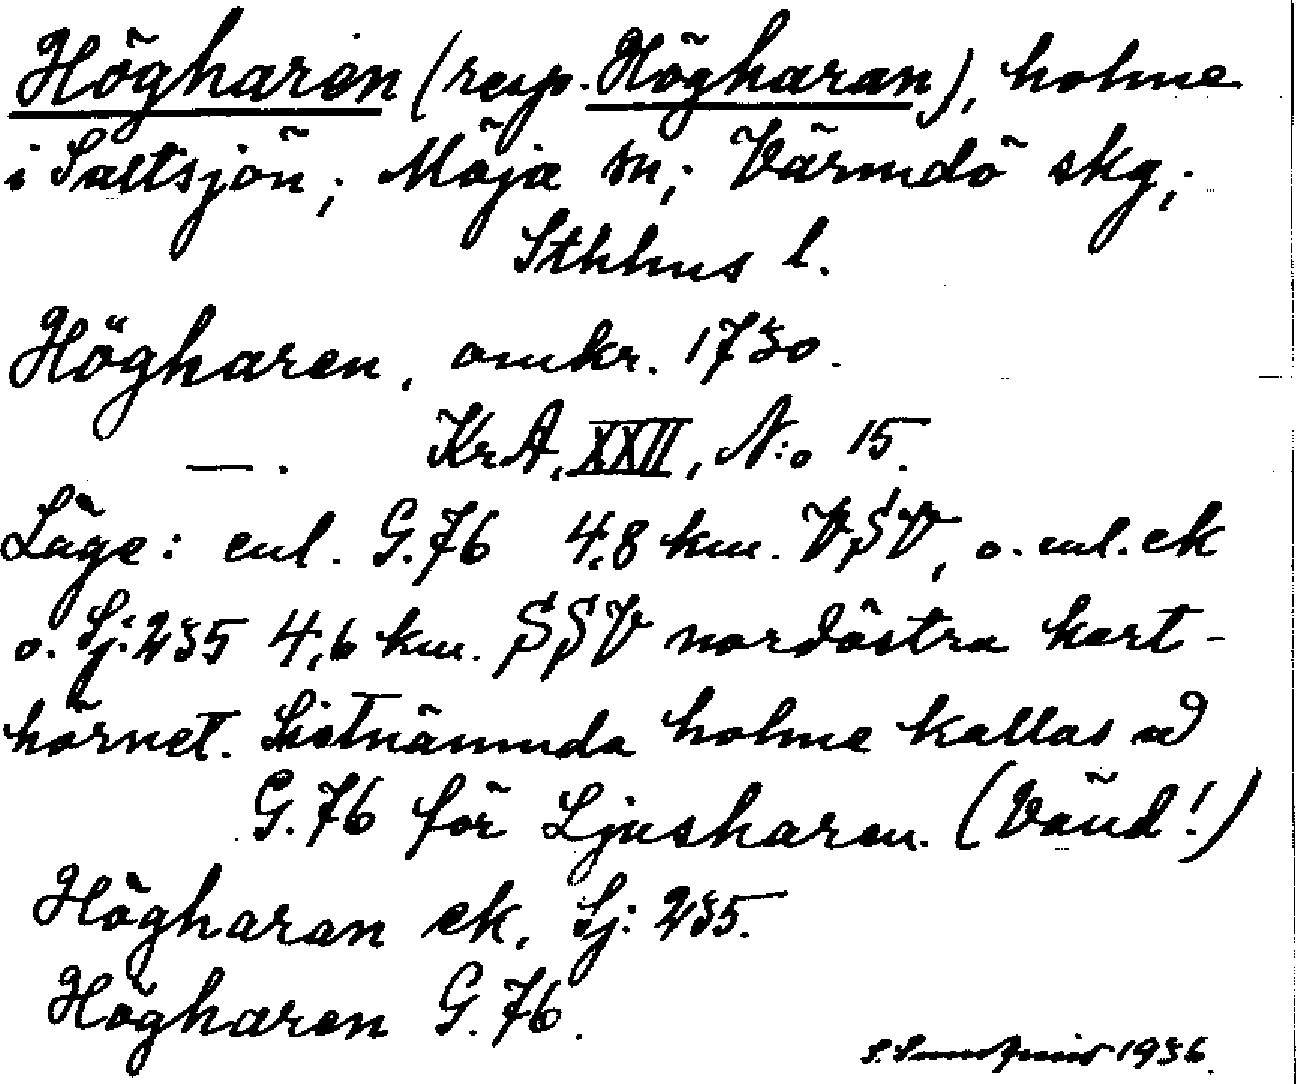 Högharen (resp. Högharan), holme
i Saltsjön; Möja sn; Värmdö skg;
Sthlms l.
Högharen, omkr. 1730.
—. KrA, XXII, N:o 15.
Läge: enl. G.76 4,8 km. VSV, o. enl. ek
o. Sj:235 4,6 km. SSV nordöstra kart-
hörnet. Sistnämnda holme kallas å
G.76 för Ljusharen. (Vänd!)
Högharan ek, Sj: 235.
Högharen G.76.
1936.